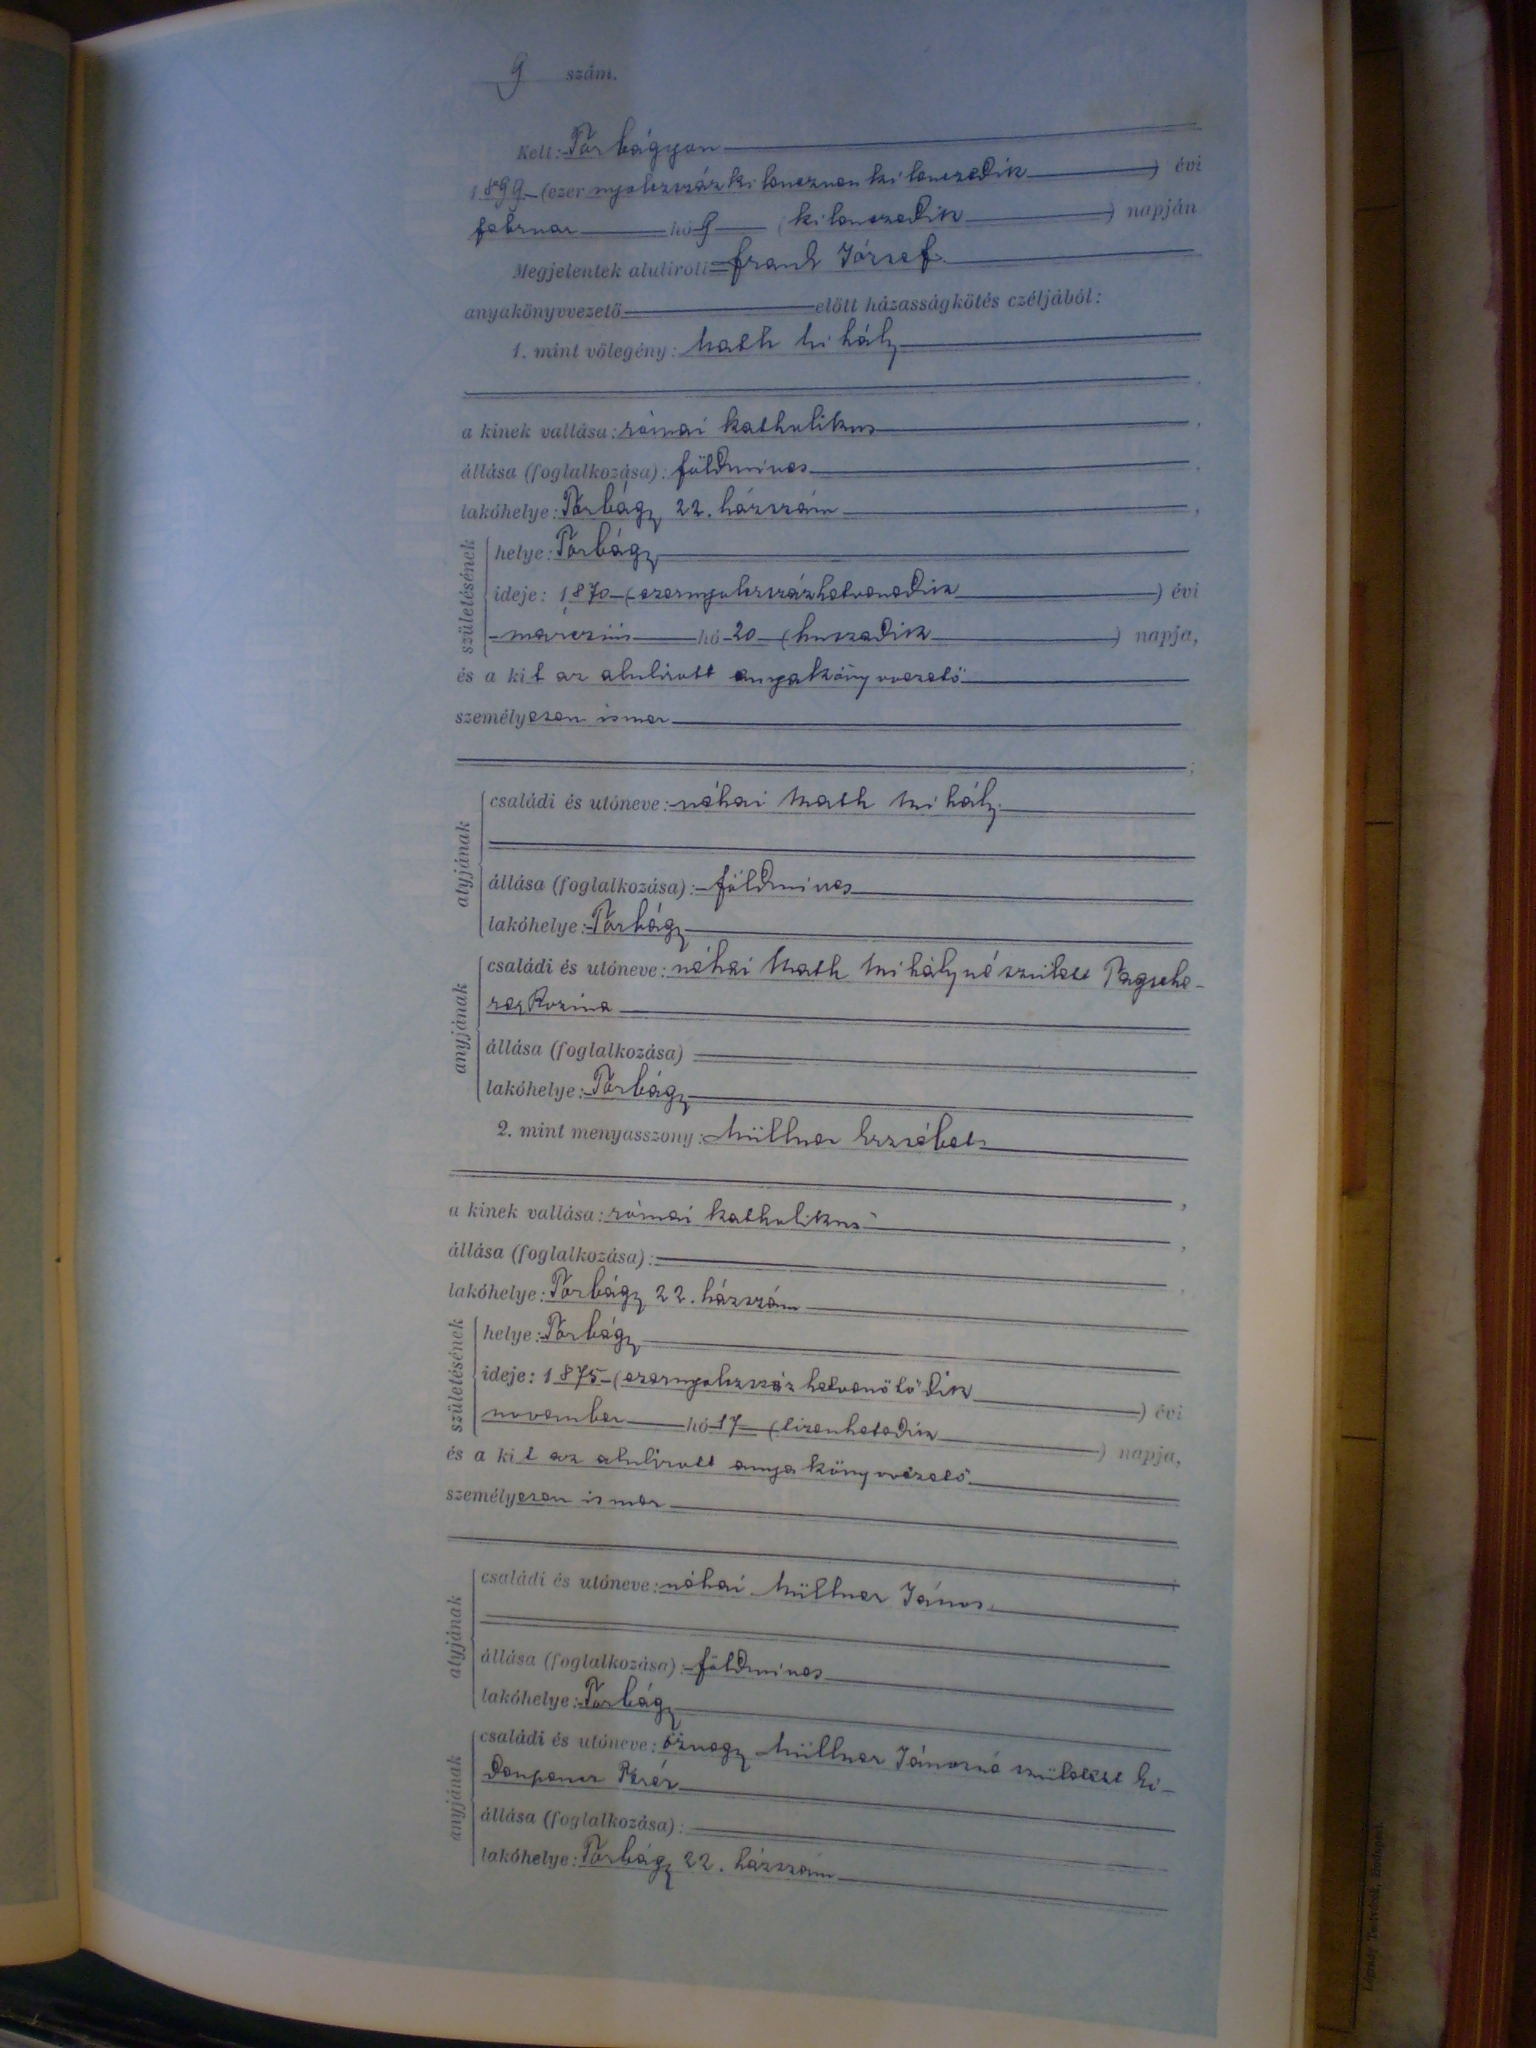 9 szám.
Kelt: Törbágyon
1899 (ezer nyolczszázkilenczvenkilenczedik) évi
februar hó 9 (kilenczedik) napján
Megjelentek alulirott Frank József
anyakönyvvezető előtt házasságkötés czéljából:
1. mint vőlegény: Math Mihály
a kinek vallása: római katholikus,
állása (foglalkozása): földmives,
lakóhelye: Törbágy 22. házszám,
születésének
helye: Törbágy
ideje: 1870 (ezernyolczszázhetvenedik) évi
márczius hó 20 (huszadik) napja,
és a kit az alulirott anyakönyvvezető
személyesen ismer
;
atyjának
családi és utóneve: néhai Math Mihály
állása (foglalkozása): földmives
lakóhelye: Törbágy
anyjának
családi és utóneve: néhai Math Mihályné született
Rozina
állása (foglalkozása)
lakóhelye: Törbágy
2. mint menyasszony: Müllner Erzsébet
,
a kinek vallása: római katholikus,
állása (foglalkozása):,
lakóhelye: Törbágy 22. házszám
születésének
helye: Törbágy
ideje: 1875 (ezernyolczszáz hetvenötödik) évi
november hó 17 (tizenhetedik) napja,
és a kit az alulirott anyakönyvvezető
személyesen ismer
;
atyjának
családi és utóneve: néhai Müllner János
állása (foglalkozása): földmives
lakóhelye: Törbágy
anyjának
családi és utóneve: özvegy Müllner Jánosné született
Teréz
állása (foglalkozása):
lakóhelye: Törbágy 22. házszám
Légrády Testvérek, Budapest.